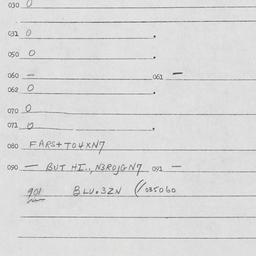 030 0
031 0
050 0
060 — 061 —
062 0
070 0
071 0
080 FARS+TO4XN7
090 — BUT HI., N3ROJGN7 091 —
901 BLU.3ZN (/035060